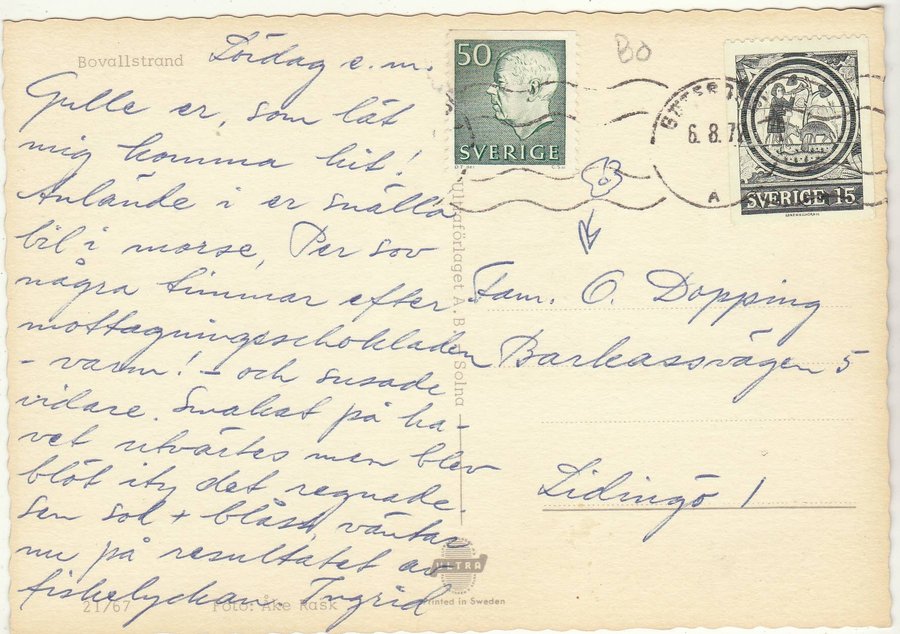 Bovallstrand
Lördag e.m.
Gulle er, som lät
mig komma hit!
Anlände i er snälla
bil i morse, Per sov
några timmar efter
mottagningschokladen
- varm! - och susade
vidare. Smakat på ha-
vet utvärtes men blev
blöt ity det regnade.
Sen sol + blåst, väntar
nu på resultatet av
fiskelyckan. Ingrid
21/67 Foto: Åke Rask
Ultraförlaget A. B. Solna
ULTRA
Printed in Sweden
50
SVERIGE
Bo
6. 8. 7
A
SVERIGE 15
Fam. O. Dopping
Barkassvägen 5
Lidingö 1